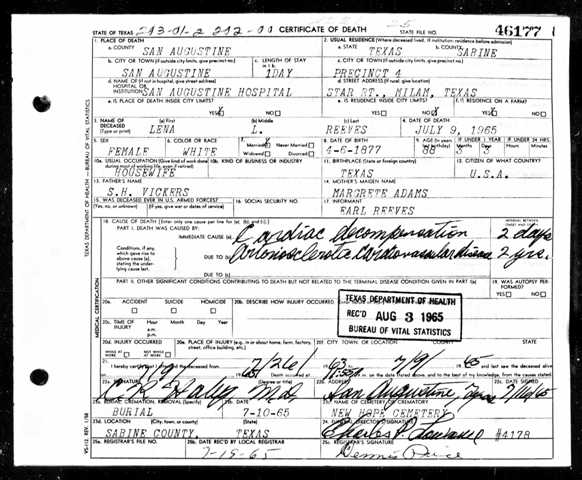 STATE OF TEXAS CERTIFICATE OF DEATH STATE FILE NO. 46177
1. PLACE OF DEATH 2. USUAL RESIDENCE (Where deceased lived. If institution: residence before admission)
a. COUNTY SAN AUGUSTINE a. STATE TEXAS b. COUNTY SABINE
b. CITY OR TOWN (If outside city limits, give precinct no.) c. LENGTH OF STAY c. CITY OR TOWN (If outside city limits, give precinct no.)
SAN AUGUSTINE 1DAY PRECINCT 4
d. NAME OF (If not in hospital, give street address) d. STREET ADDRESS (If rural, give location)
HOSPITAL OR
INSTITUTION SAN AUGUSTINE HOSPITAL STAR RT., MILAM, TEXAS
e. IS PLACE OF DEATH INSIDE CITY LIMITS? e. IS RESIDENCE INSIDE CITY LIMITS? f. IS RESIDENCE ON A FARM?
YES NO YES NO YES NO
3. NAME OF DECEASED (Type or print) (a) First (b) Middle (c) Last 4. DATE OF DEATH
LENA L. REEVES JULY 9, 1965
5. SEX 6. COLOR OR RACE 7. Married Never Married 8. DATE OF BIRTH 9. AGE IF UNDER 1 YEAR IF UNDER 24 HRS.
FEMALE WHITE Widowed Divorced 4-6-1877 88 3 3
10a. USUAL OCCUPATION (Give kind of work done) 10b. KIND OF BUSINESS OR INDUSTRY 11. BIRTHPLACE (State or foreign country) 12. CITIZEN OF WHAT COUNTRY?
HOUSEWIFE TEXAS U.S.A.
13. FATHER'S NAME 14. MOTHER'S MAIDEN NAME
S.H. VICKERS MARGRETE ADAMS
15. WAS DECEASED EVER IN U.S. ARMED FORCES? 16. SOCIAL SECURITY NO. 17. INFORMANT
(Yes, no, or unknown) (If yes, give war or dates of service) EARL REEVES
18. CAUSE OF DEATH [Enter only one cause per line for (a), (b) and (c).] INTERVAL BETWEEN
PART I. DEATH WAS CAUSED BY:
IMMEDIATE CAUSE (a) Cardiac decompensation 2 days
Conditions, if any, which gave rise to above cause (a), stating the underlying cause last.
DUE TO (b) Arteriosclerotic Cardiovascular disease 2 yrs.
DUE TO (c)
PART II. OTHER SIGNIFICANT CONDITIONS CONTRIBUTING TO DEATH BUT NOT RELATED TO THE TERMINAL DISEASE CONDITION GIVEN IN PART I(a) 19. WAS AUTOPSY PERFORMED?
YES NO
20a. ACCIDENT SUICIDE HOMICIDE 20b. DESCRIBE HOW INJURY OCCURRED
TEXAS DEPARTMENT OF HEALTH
REC'D AUG 3 1965
BUREAU OF VITAL STATISTICS
20c. TIME OF INJURY Hour Month Day Year
a.m.
p.m.
20d. INJURY OCCURRED 20e. PLACE OF INJURY (e.g. in or about home, farm, factory, street, office building, etc.) 20f. CITY, TOWN, OR LOCATION COUNTY STATE
WHILE AT WORK NOT WHILE AT WORK
21. I hereby certify that I attended the deceased from 7/26/ 63 7/9/ 65
22a. SIGNATURE (Degree or title) 22b. ADDRESS 22c. DATE SIGNED
M.D. San Augustine, Texas
23a. BURIAL, CREMATION, REMOVAL (Specify) 23b. DATE 23c. NAME OF CEMETERY OR CREMATORY
BURIAL 7-10-65 NEW HOPE CEMETERY
23d. LOCATION (City, town, or county) (State) 24. FUNERAL DIRECTOR'S SIGNATURE
SABINE COUNTY, TEXAS #4178
25a. REGISTRAR'S FILE NO. 25b. DATE REC'D BY LOCAL REGISTRAR 25c. REGISTRAR'S SIGNATURE
7-19-65
TEXAS DEPARTMENT OF HEALTH—BUREAU OF VITAL STATISTICS
MEDICAL CERTIFICATION